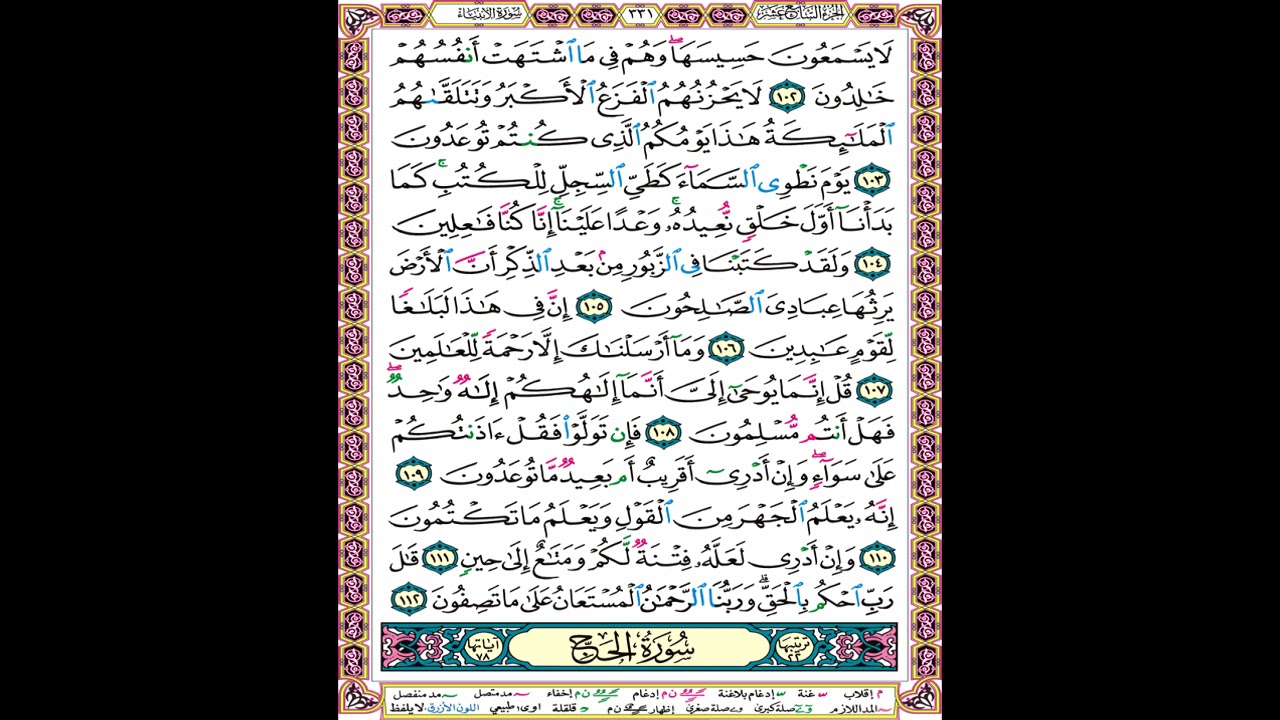 الجزء السابع عشر ٣٣١ سورة الأنبياء
لَا يَسْمَعُونَ حَسِيسَهَا ۖ وَهُمْ فِي مَا ٱشْتَهَتْ أَنفُسُهُمْ
خَٰلِدُونَ ١٠٢ لَا يَحْزُنُهُمُ ٱلْفَزَعُ ٱلْأَكْبَرُ وَتَتَلَقَّىٰهُمُ
ٱلْمَلَٰٓئِكَةُ هَٰذَا يَوْمُكُمُ ٱلَّذِى كُنتُمْ تُوعَدُونَ
١٠٣ يَوْمَ نَطْوِى ٱلسَّمَآءَ كَطَىِّ ٱلسِّجِلِّ لِلْكُتُبِ ۚ كَمَا
بَدَأْنَآ أَوَّلَ خَلْقٍ نُّعِيدُهُۥ ۚ وَعْدًا عَلَيْنَآ ۚ إِنَّا كُنَّا فَٰعِلِينَ
١٠٤ وَلَقَدْ كَتَبْنَا فِى ٱلزَّبُورِ مِنۢ بَعْدِ ٱلذِّكْرِ أَنَّ ٱلْأَرْضَ
يَرِثُهَا عِبَادِىَ ٱلصَّٰلِحُونَ ١٠٥ إِنَّ فِى هَٰذَا لَبَلَٰغًا
لِّقَوْمٍ عَٰبِدِينَ ١٠٦ وَمَآ أَرْسَلْنَٰكَ إِلَّا رَحْمَةً لِّلْعَٰلَمِينَ
١٠٧ قُلْ إِنَّمَا يُوحَىٰٓ إِلَىَّ أَنَّمَآ إِلَٰهُكُمْ إِلَٰهٌ وَٰحِدٌ ۖ
فَهَلْ أَنتُم مُّسْلِمُونَ ١٠٨ فَإِن تَوَلَّوْا۟ فَقُلْ ءَاذَنتُكُمْ
عَلَىٰ سَوَآءٍ ۖ وَإِنْ أَدْرِىٓ أَقَرِيبٌ أَم بَعِيدٌ مَّا تُوعَدُونَ ١٠٩
إِنَّهُۥ يَعْلَمُ ٱلْجَهْرَ مِنَ ٱلْقَوْلِ وَيَعْلَمُ مَا تَكْتُمُونَ
١١٠ وَإِنْ أَدْرِى لَعَلَّهُۥ فِتْنَةٌ لَّكُمْ وَمَتَٰعٌ إِلَىٰ حِينٍ ١١١ قَٰلَ
رَبِّ ٱحْكُم بِٱلْحَقِّ ۗ وَرَبُّنَا ٱلرَّحْمَٰنُ ٱلْمُسْتَعَانُ عَلَىٰ مَا تَصِفُونَ ١١٢
ترتيبها ٢٢ سُورَةُ الحَجّ آياتها ٧٨
م إقلاب غنة إدغام بلاغنة ن م إدغام ن م إخفاء مد متصل مد منفصل
المد اللازم صلة كبرى صلة صغرى إظهار ن م قلقلة اوى طبيعي اللون الأزرق لا يلفظ